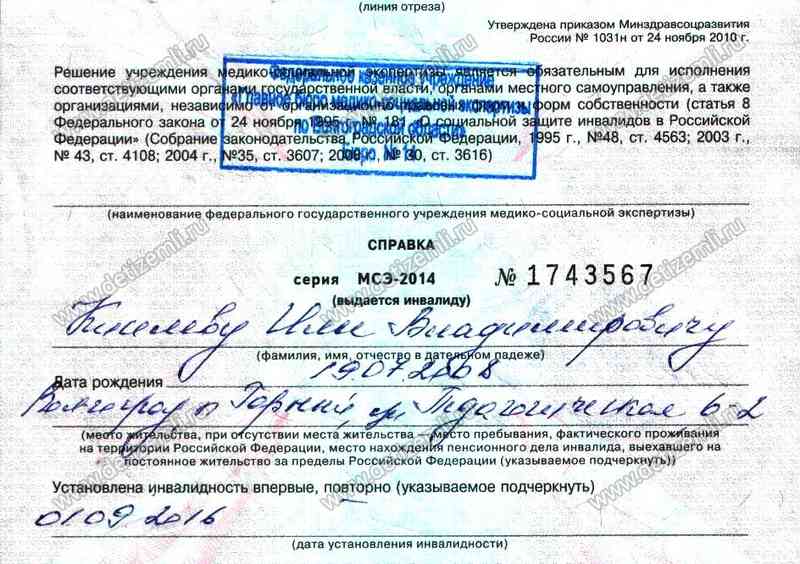 (линия отреза)
Утверждена приказом Минздравсоцразвития
России № 1031н от 24 ноября 2010 г.
Решение учреждения медико-социальной экспертизы является обязательным для исполнения
соответствующими органами государственной власти, органами местного самоуправления, а также
организациями, независимо от организационно-правовых форм и форм собственности (статья 8
Федерального закона от 24 ноября 1995 г. № 181 «О социальной защите инвалидов в Российской
Федерации» (Собрание законодательства Российской Федерации, 1995 г., №48, ст. 4563; 2003 г.,
№ 43, ст. 4108; 2004 г., №35, ст. 3607; 2008 г., № 30, ст. 3616)
Федерального казенного учреждения
«Главное бюро медико-социальной экспертизы
по Волгоградской области»
Бюро № 14
(наименование федерального государственного учреждения медико-социальной экспертизы)
СПРАВКА
серия МСЭ-2014 № 1743567
(выдается инвалиду)
Киселеву Илье Владимировичу
(фамилия, имя, отчество в дательном падеже)
Дата рождения 19.07.2008
Волгоград п Горный, ул Педагогическая 6-2
(место жительства, при отсутствии места жительства – место пребывания, фактического проживания
на территории Российской Федерации, место нахождения пенсионного дела инвалида, выехавшего на
постоянное жительство за пределы Российской Федерации (указываемое подчеркнуть))
Установлена инвалидность впервые, повторно (указываемое подчеркнуть)
01.09.2016
(дата установления инвалидности)
www.detizemli.ru